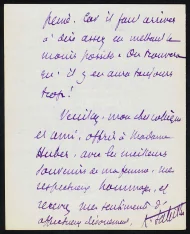 pensé. Car il faut arriver
à dire assez en mettant le
moins possible. On trouvera
qu'il y en aura toujours
trop!
Veuillez, mon cher collègue
et ami, offrir à Madame
Huber, avec les meilleurs
souvenirs de ma femme, mes
respectueux hommages, et
recevez mes sentiments d'
affectueux dévouement.